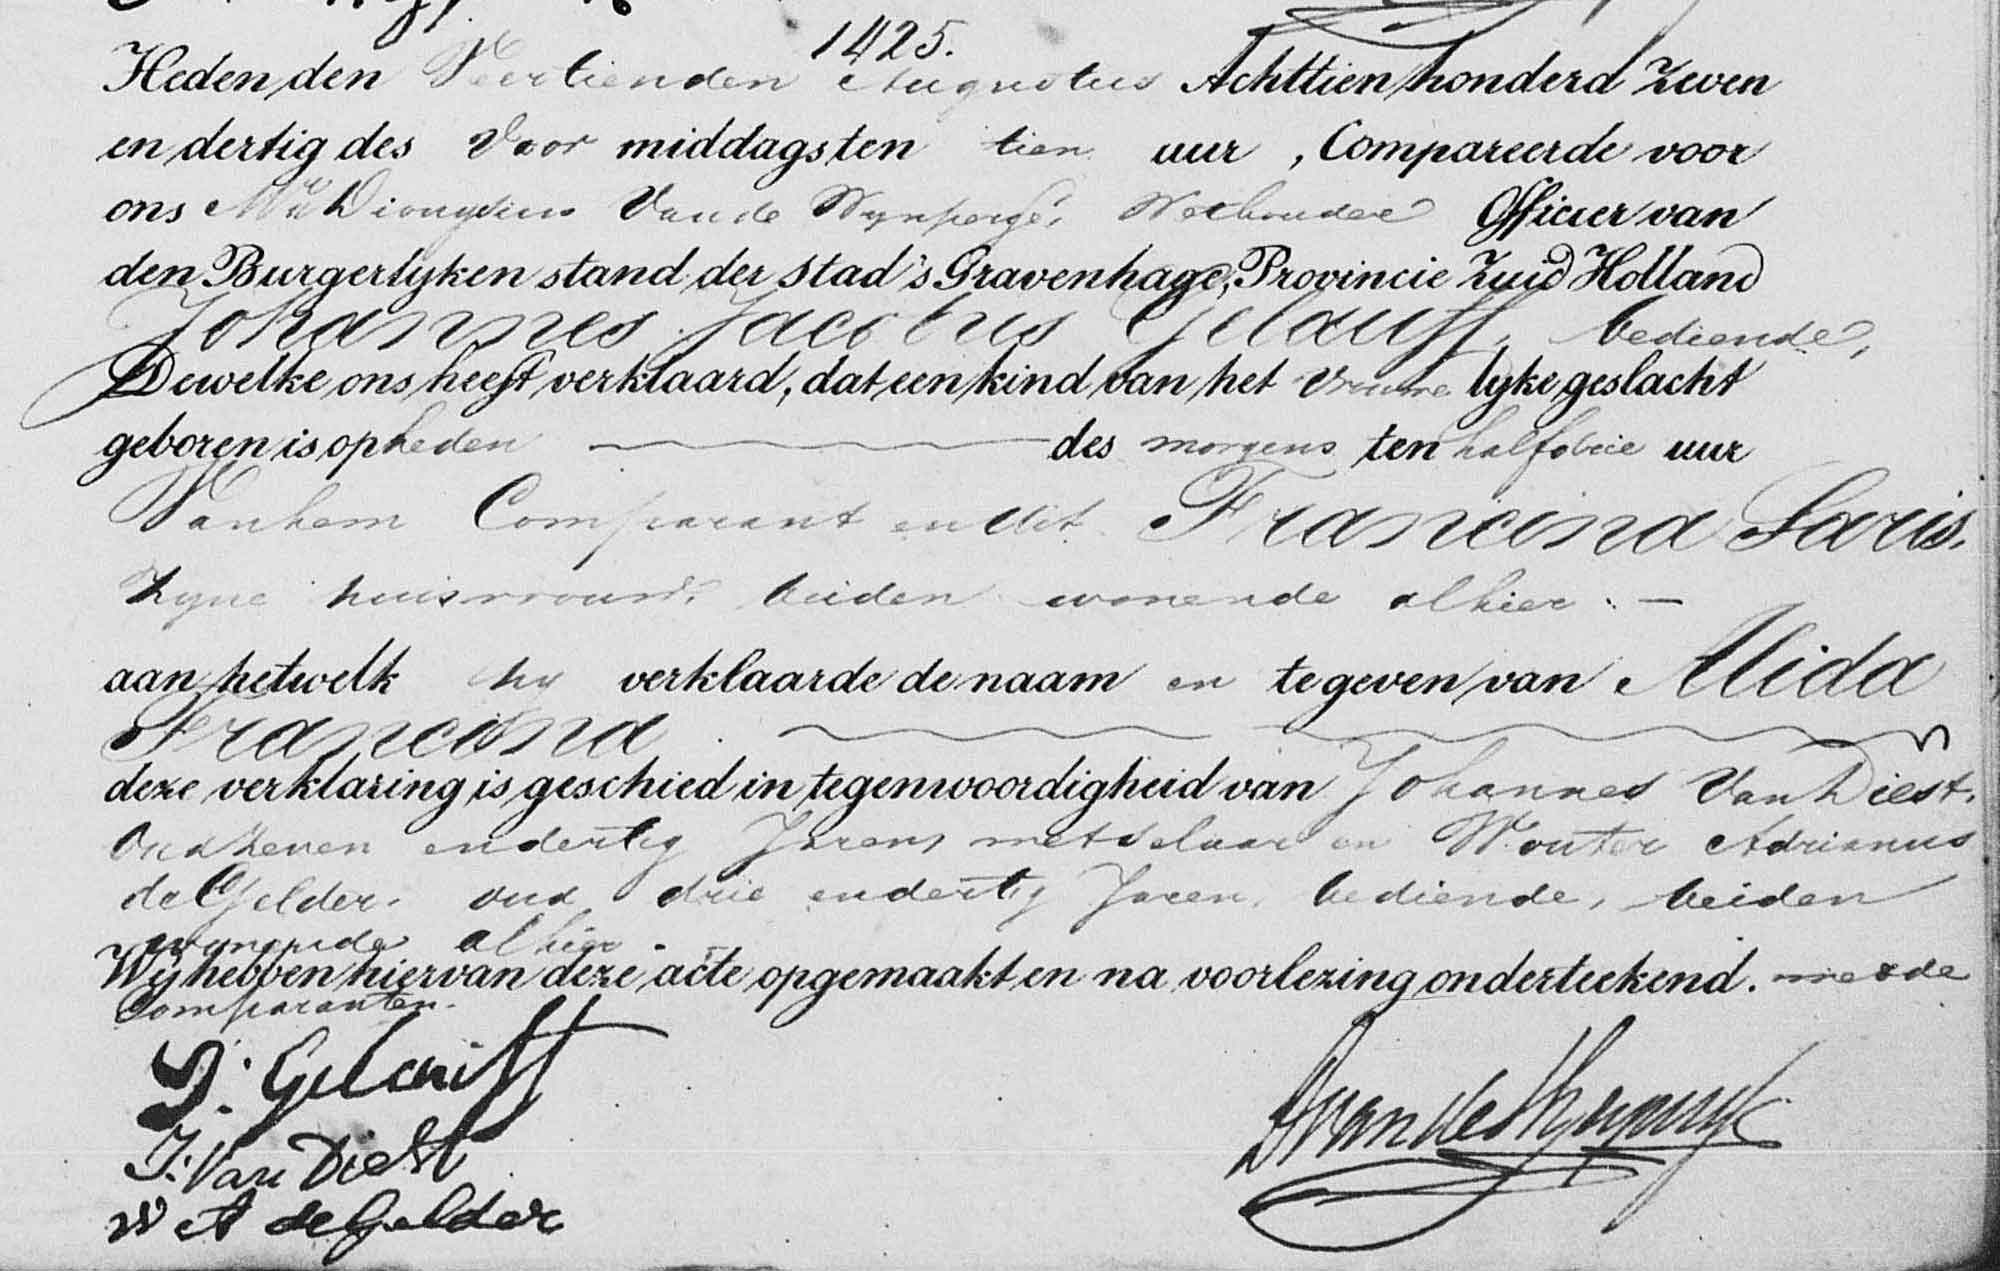 1425.
Heden den Veertienden Augustus Achttien honderd zeven
en dertig des Voor middags ten tien uur, Compareerde voor
ons Mr Dionysius Van de Wynpersse, Wethouder Officier van
den Burgerlyken stand der stad 's Gravenhage, Provincie Zuid Holland
Johannes Jacobus Gelauff, bediende,
Dewelke ons heeft verklaard, dat een kind van het Vrouwe lyke geslacht
geboren is op heden des morgens ten half drie uur
Van hem Comparant en uit Francina Saris,
Zyne huisvrouw, beiden wonende alhier. –
aan hetwelk hy verklaarde de naam en te geven van Alida
Francina
deze verklaring is geschied in tegenwoordigheid van Johannes Van Diest,
Oud Zeven en dertig Jaren, metselaar en Wouter Adrianus
de Gelder, oud drie en dertig Jaren, bediende, beiden
wonende alhier
Wij hebben hiervan deze acte opgemaakt en na voorlezing onderteekend. met de
Comparanten.
J. Gelauff
J. Van Diest
W A de Gelder